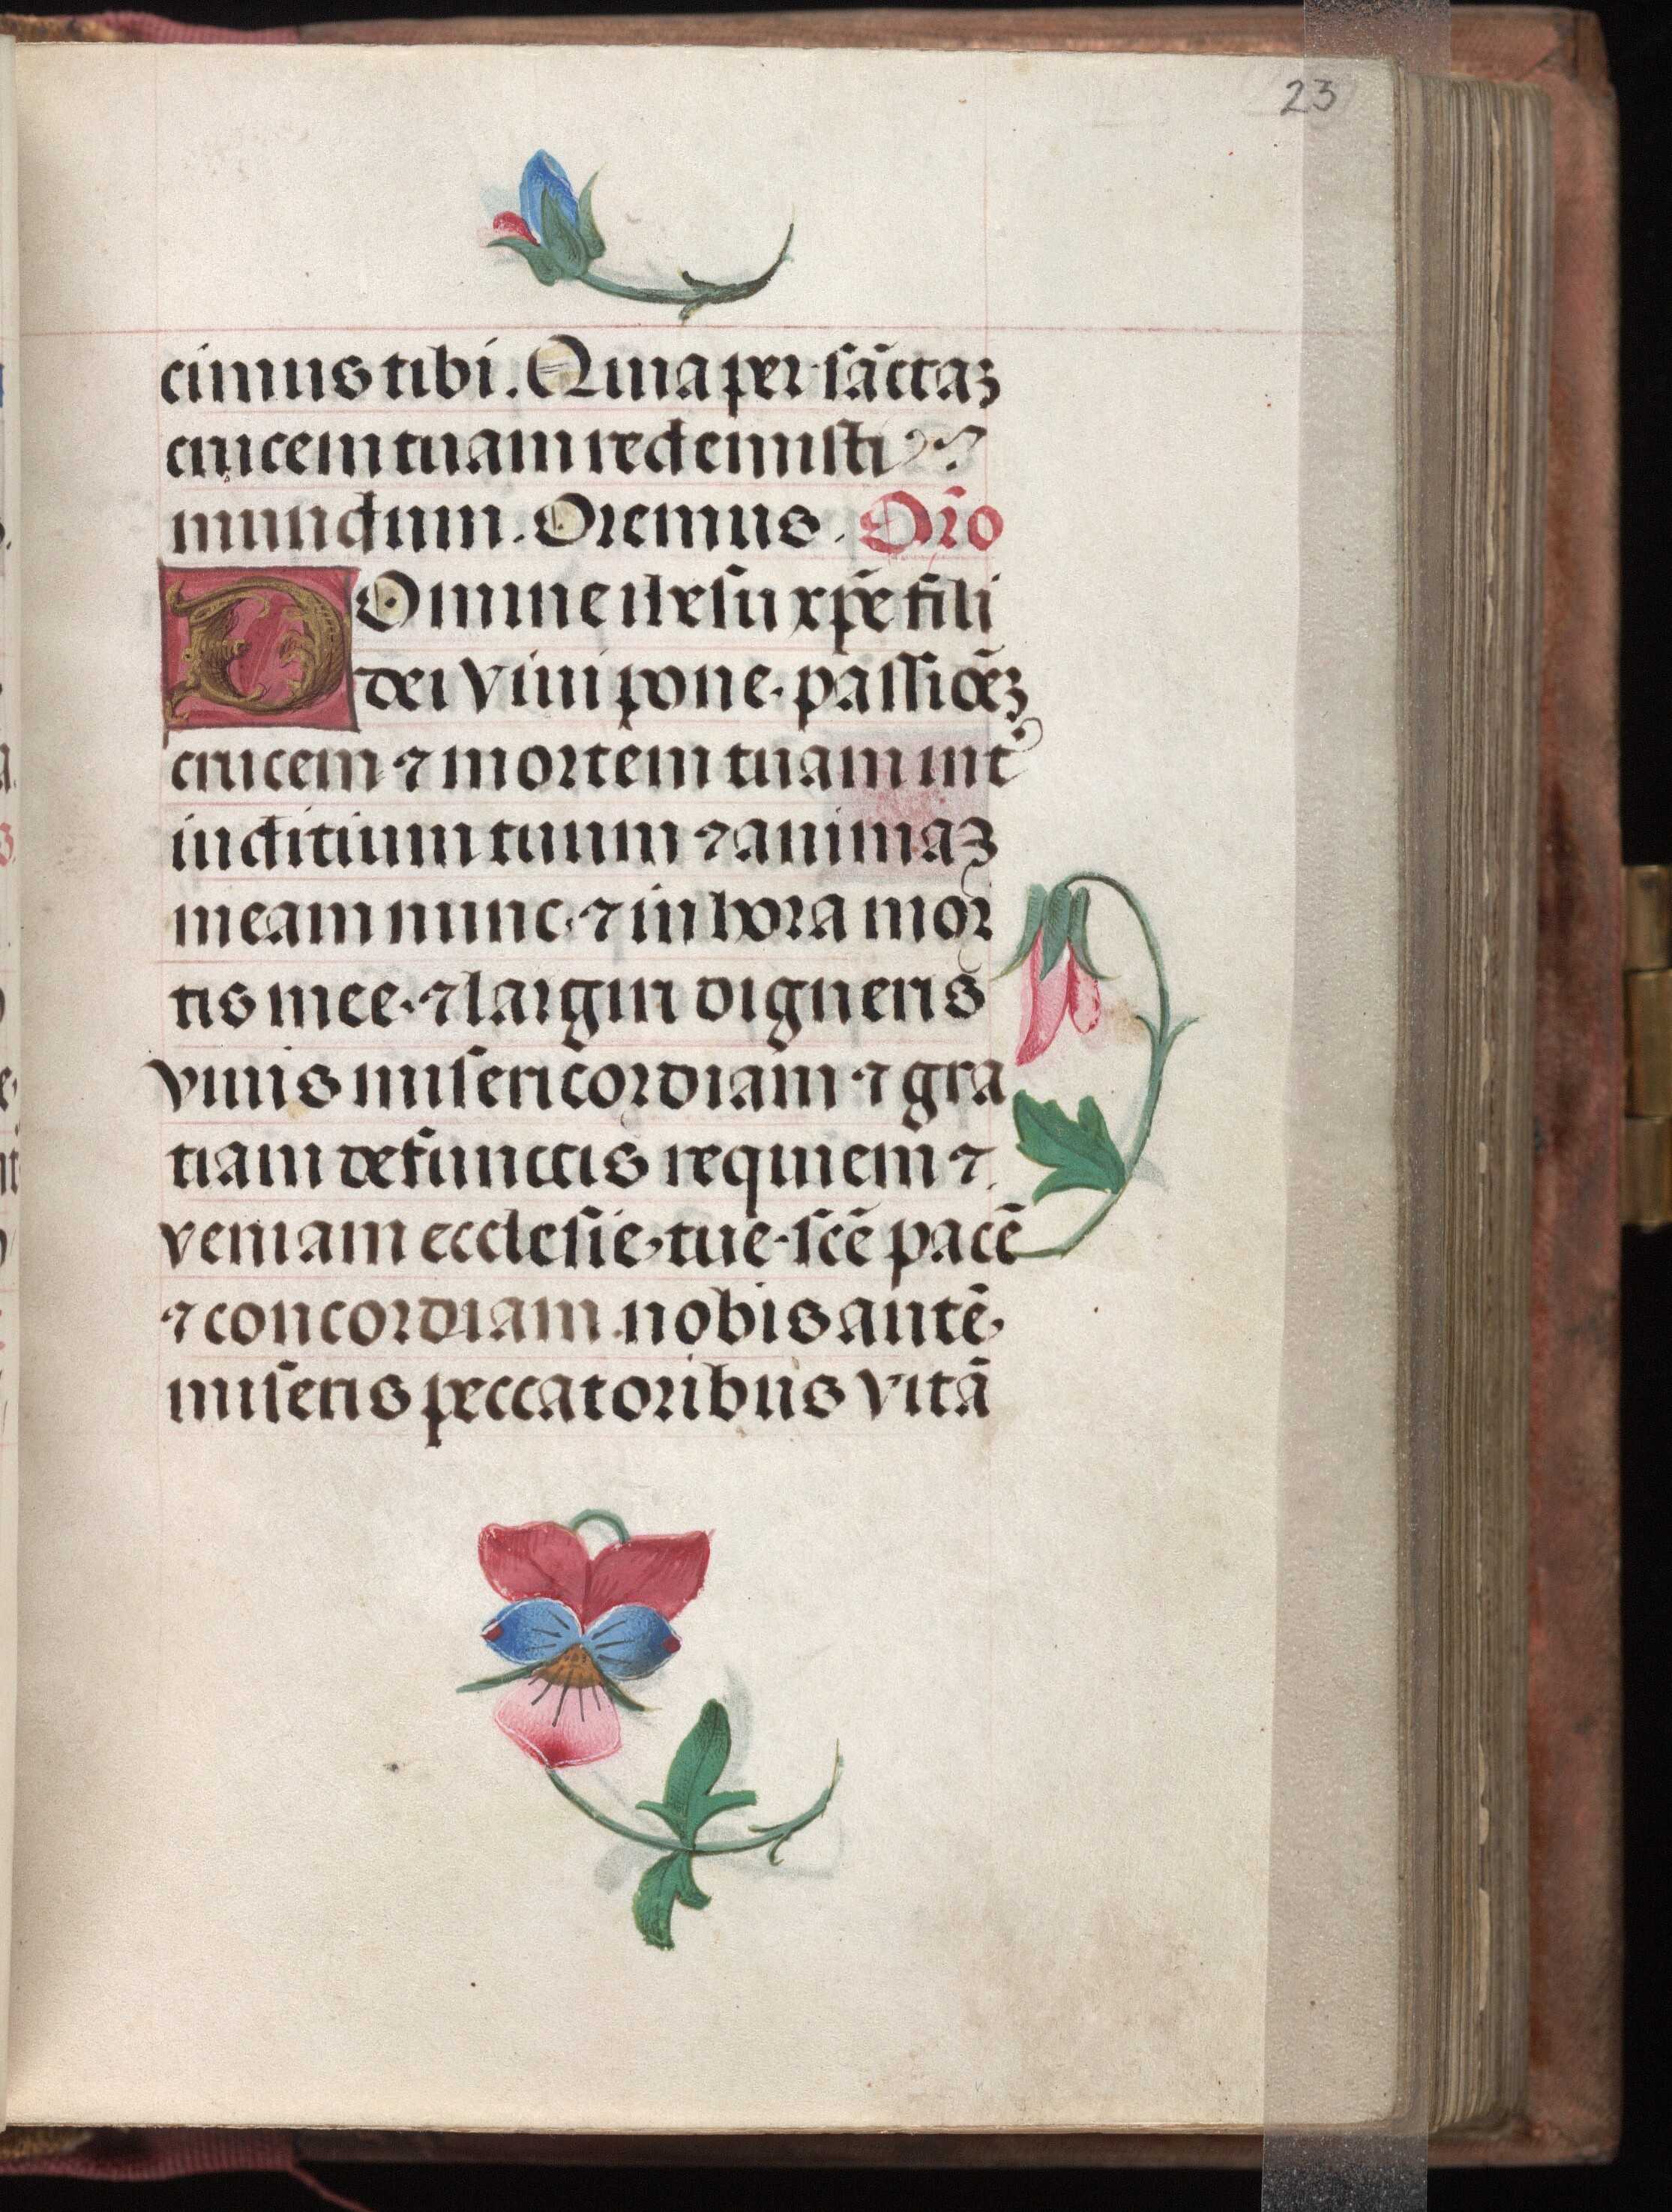 23
cimus tibi. Quia per sāctaꝫ
crucem tuam redemisti
mundum. Oremus. Or̄o
DOmine ihesu xp̄e fili
dei viui pone. passiōeꝫ
crucem ⁊ mortem tuam int᷒
iuditium tuum ⁊ animaꝫ
meam nunc. ⁊ in hora mor
tis mee. ⁊ largiri digneris
viuis misericordiam ⁊ gra
tiam defunctis requiem ⁊
veniam ecclesie. tue. scē pacē
⁊ concordiam. nobis autē.
miseris peccatoribus vitā